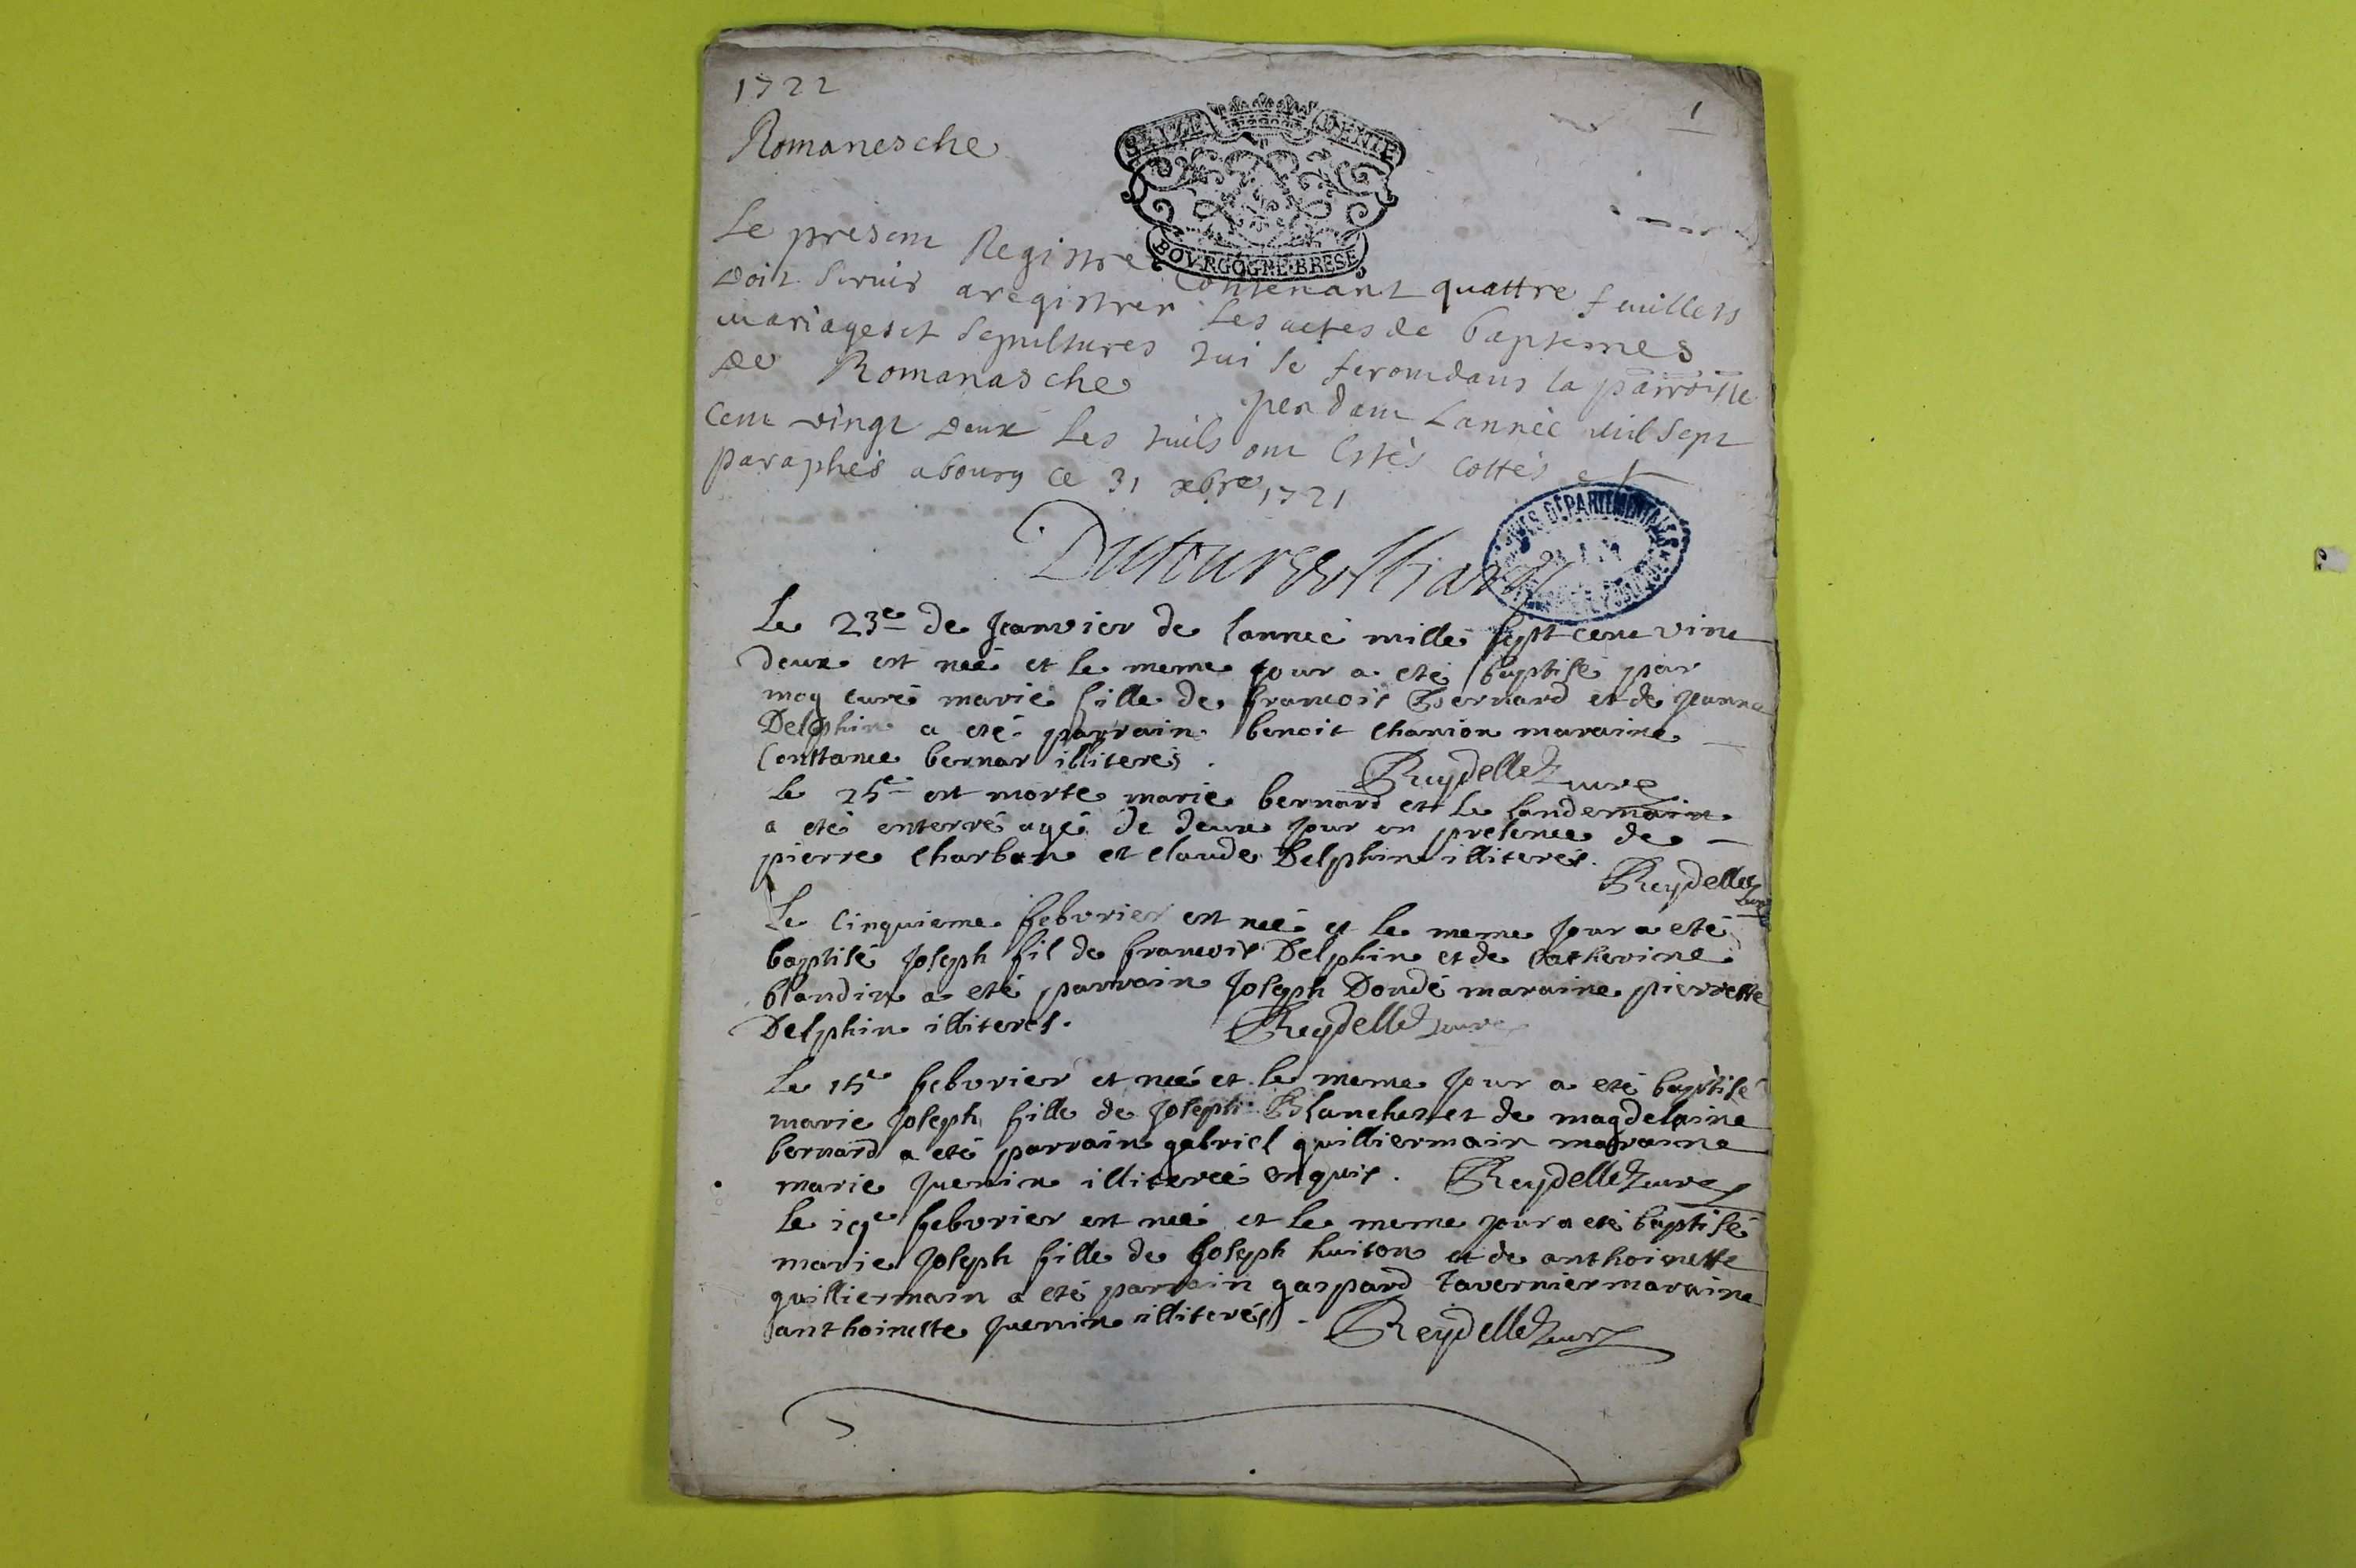 1722
1
Romanesche
SEIZE DENIE
BOVRGOGNE·BRESE
Le present Registre Contenant quattre feuillets
doit servir aregistrer les actes de baptemes
mariages et sepultures qui se feront dans la parroisse
de Romanasche pendant Lannéé mil sept
cent vingt deux les quels ont Estés cottés et
paraphés abourg ce 31 xbre 1721
ARCHIVES DÉPARTEMENTALES
Le 23e de Janvier de lanneé mille sept cent vint
deux est neé et le meme jour a eté baptisé par
moy curé marie fille de francois Bernard et de Jeanne
Delphin a eté parrain benoit Chanion maraine
Constance bernar illiterés.
Reydellet curé
le 25e est morte marie bernard et le landemain
a eté enterré agé de deux jour en presence de
pierre Charban et claude Delphin illiterés.
Reydellet curé
Le Cinquieme febvrier est neé et le meme jour a eté
baptisé Joseph fil de francois Delphin et de Catherine
blandin a eté parrain Joseph Dondé maraine pierrette
Delphin illiterés. Reydellet curé
Le 15e febvrier et neé et le meme jour a eté baptisé
marie Joseph fille de Joseph Blanchet et de magdelaine
bernard a eté parrain gabriel guilliermain maraine
marie Juenin illitereé enquis. Reydellet curé
le 19e febvrier est neé et le meme jour a eté baptisé
marie Joseph fille de Joseph huiton et de anthoinette
guilliermain a eté parrain gaspard tavernier maraine
anthoinette Juenin illiterés. Reydellet curé